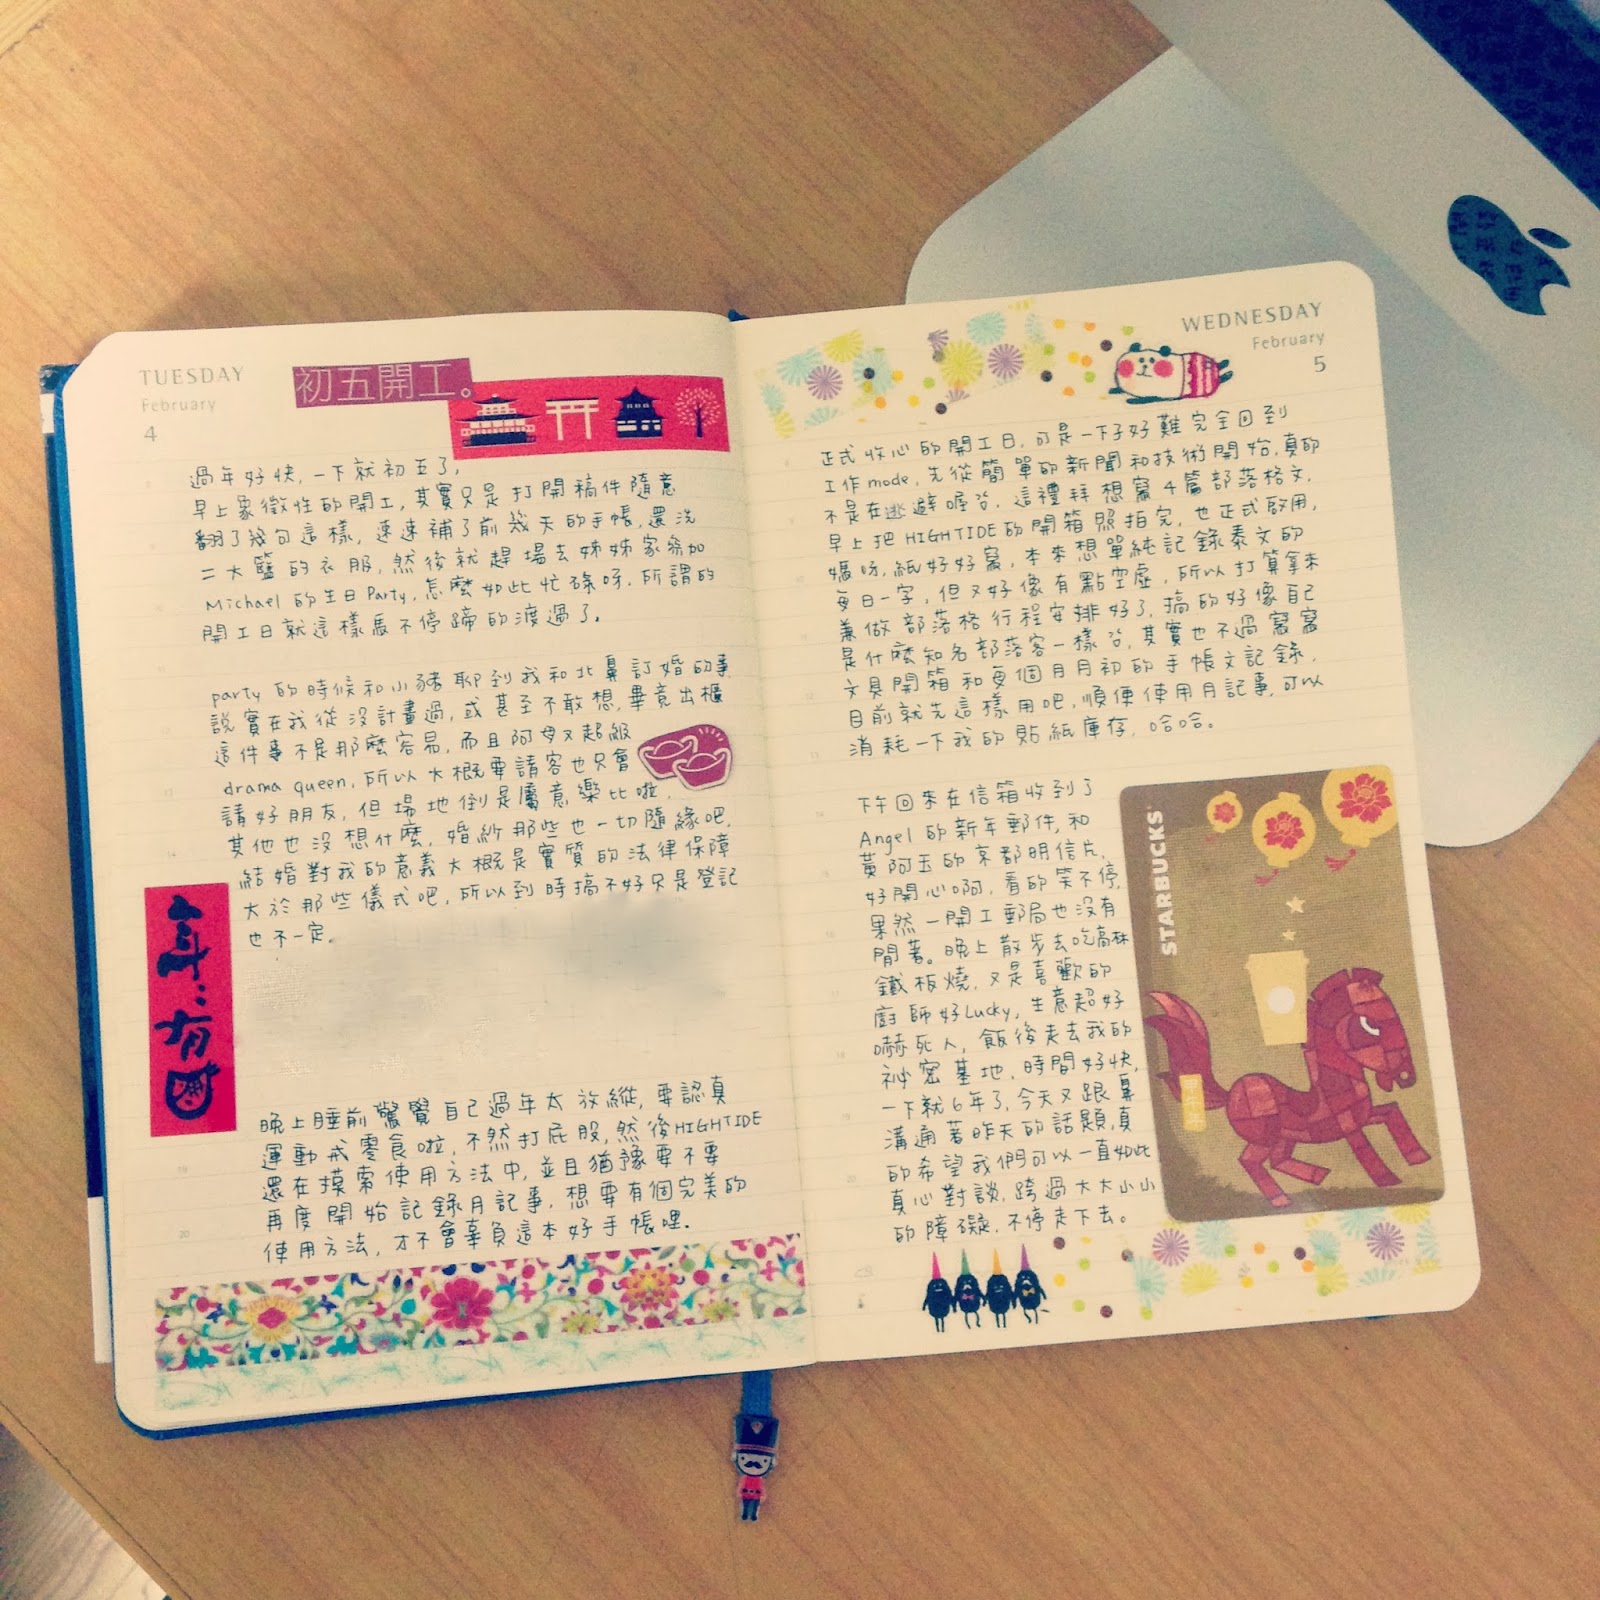 TUESDAY
February
4
初五開工。
過年好快,一下就初五了,
早上象徵性的開工,其實只是打開稿件隨意
翻了幾句這樣,速速補了前幾天的手帳,還洗
二大籃的衣服,然後就趕場去姊姊家參加
Michael的生日Party,怎麼如此忙碌呀,所謂的
開工日就這樣馬不停蹄的渡過了。
party的時候和小豬聊到我和北鼻訂婚的事
說實在我從沒計畫過,或甚至不敢想,畢竟出櫃
這件事不是那麼容易,而且阿母又超級
drama queen,所以大概要請客也只會
請好朋友,但場地倒是屬意樂比啦,
其他也沒想什麼,婚紗那些也一切隨緣吧,
結婚對我的意義大概是實質的法律保障
大於那些儀式吧,所以到時搞不好只是登記
也不一定,
年年有
晚上睡前驚覺自己過年太放縱,要認真
運動戒零食啦,不然打屁股,然後HIGHTIDE
還在摸索使用方法中,並且猶豫要不要
再度開始記錄月記事,想要有個完美的
使用方法,才不會辜負這本好手帳哩.
WEDNESDAY
February
5
正式收心的開工日,可是一下子好難完全回到
工作mode,先從簡單的新聞和技術開始,真的
不是在逃避喔㕣.這禮拜想寫4篇部落格文,
早上把HIGHTIDE的開箱照拍完,也正式啟用,
媽呀,紙好好寫,本來想單純記錄泰文的
每日一字,但又好像有點空虛,所以打算拿來
兼做部落格行程安排好了,搞的好像自己
是什麼知名部落客一樣㕣,其實也不過寫寫
文具開箱和每個月月初的手帳文記錄,
目前就先這樣用吧,順便使用月記事,可以
消耗一下我的貼紙庫存,哈哈。
下午回來在信箱收到了
Angel的新年郵件,和
黃阿玉的京都明信片,
好開心啊,看的笑不停,
果然一開工郵局也沒有
閒著。晚上散步去吃高林
鐵板燒,又是喜歡的
廚師好Lucky,生意超好
嚇死人,飯後走去我的
祕密基地,時間好快,
一下就6年了,今天又跟鼻
溝通著昨天的話題,真
的希望我們可以一直如此
真心對談,跨過大大小小
的障礙,不停走下去。
STARBUCKS